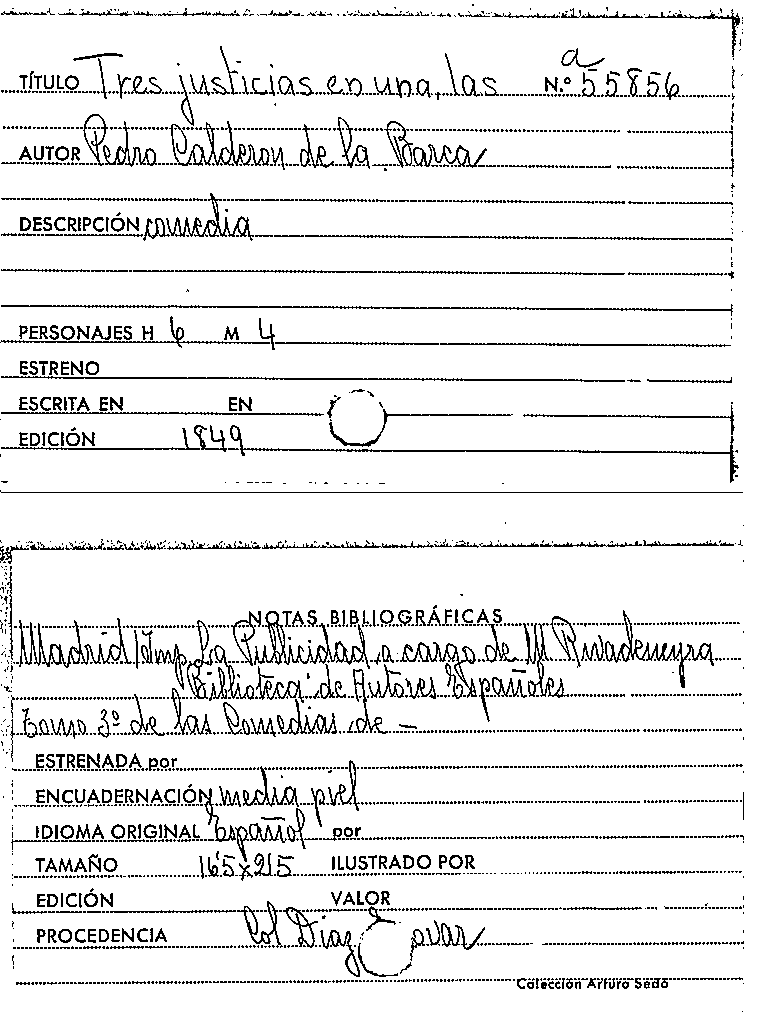 TÍTULO Tres justicias en una, las N.º 55856
a
AUTOR Pedro Calderon de la Barca
DESCRIPCIÓN comedia
PERSONAJES H 6 M 4
ESTRENO
ESCRITA EN EN
EDICIÓN 1849
NOTAS BIBLIOGRÁFICAS
Madrid/Imp. La Publicidad a cargo de M Rivadeneyra
Biblioteca de Autores Españoles
Tomo 3º de las Comedias de –
ESTRENADA por
ENCUADERNACIÓN media piel
IDIOMA ORIGINAL Español por
TAMAÑO 16'5x21'5 ILUSTRADO POR
EDICIÓN VALOR
PROCEDENCIA Col Diaz ovar
Colección Arturo Sedó